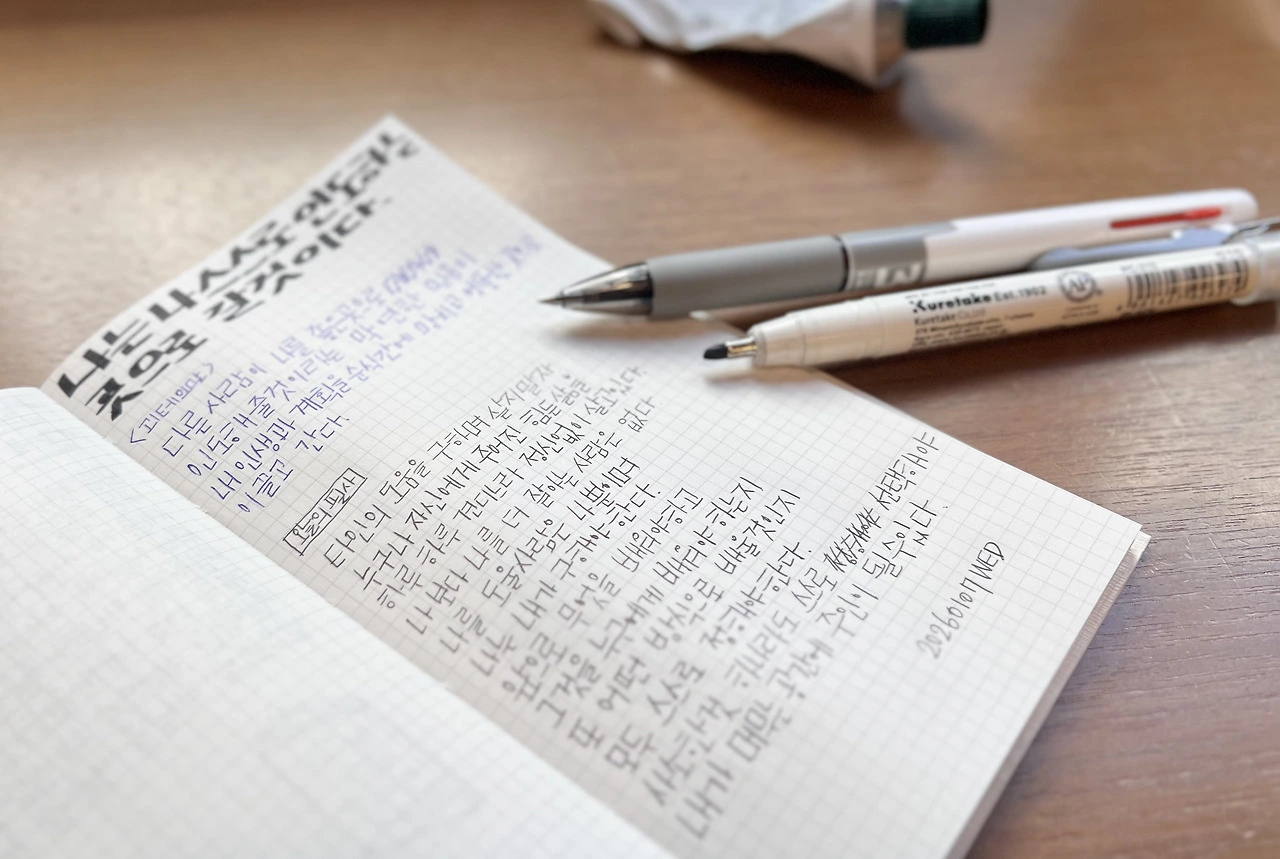 나는 내 스스로 인도한
곳으로 갈것이다.
<괴테의말>
다른 사람이 나를 좋은곳으로
인도해 줄것이라는 막연한 믿음이
내 인생과 계획을 순식간에 망치고 엉뚱한 곳으로
이끌고 간다.
오늘의 필사
타인의 도움을 구하며 살지말자
누구나 자신에게 주어진 힘든 삶을
하루하루 견디느라 정신없이 살고있다.
나 보다 나를 더 잘아는 사람은 없다
나를 도울사람은 나뿐이며
나는 내가 구해야한다.
앞으로 무엇을 배워야하고
그것을 누구에게 배워야 하는지
또 어떤 방식으로 배울것인지
모두 스스로 정해야한다.
사소한것 하나라도 스스로 선택해야
내가 머무는 공간에 주인이 될수있다.
20260107 WED
Kuretake Est.1902